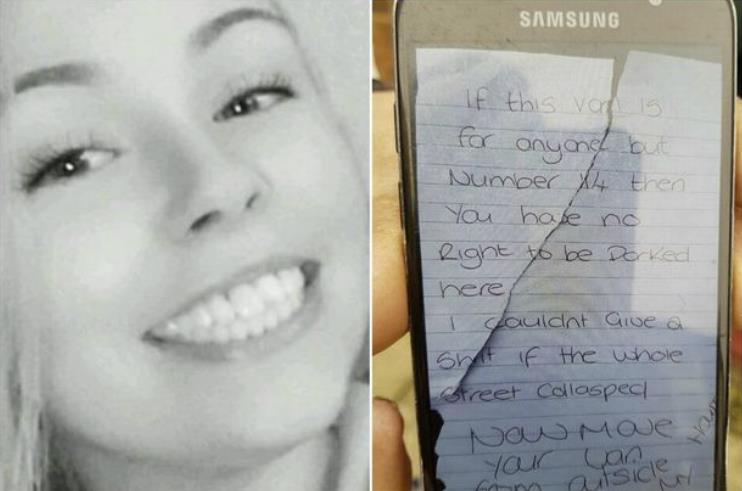 SAMSUNG
If this van is
for anyone but
Number 14 then
You have no
Right to be Parked
here
I couldnt Give a
Shit if the whole
Street Collasped
Now Move
Your Van
from outside
MY Home